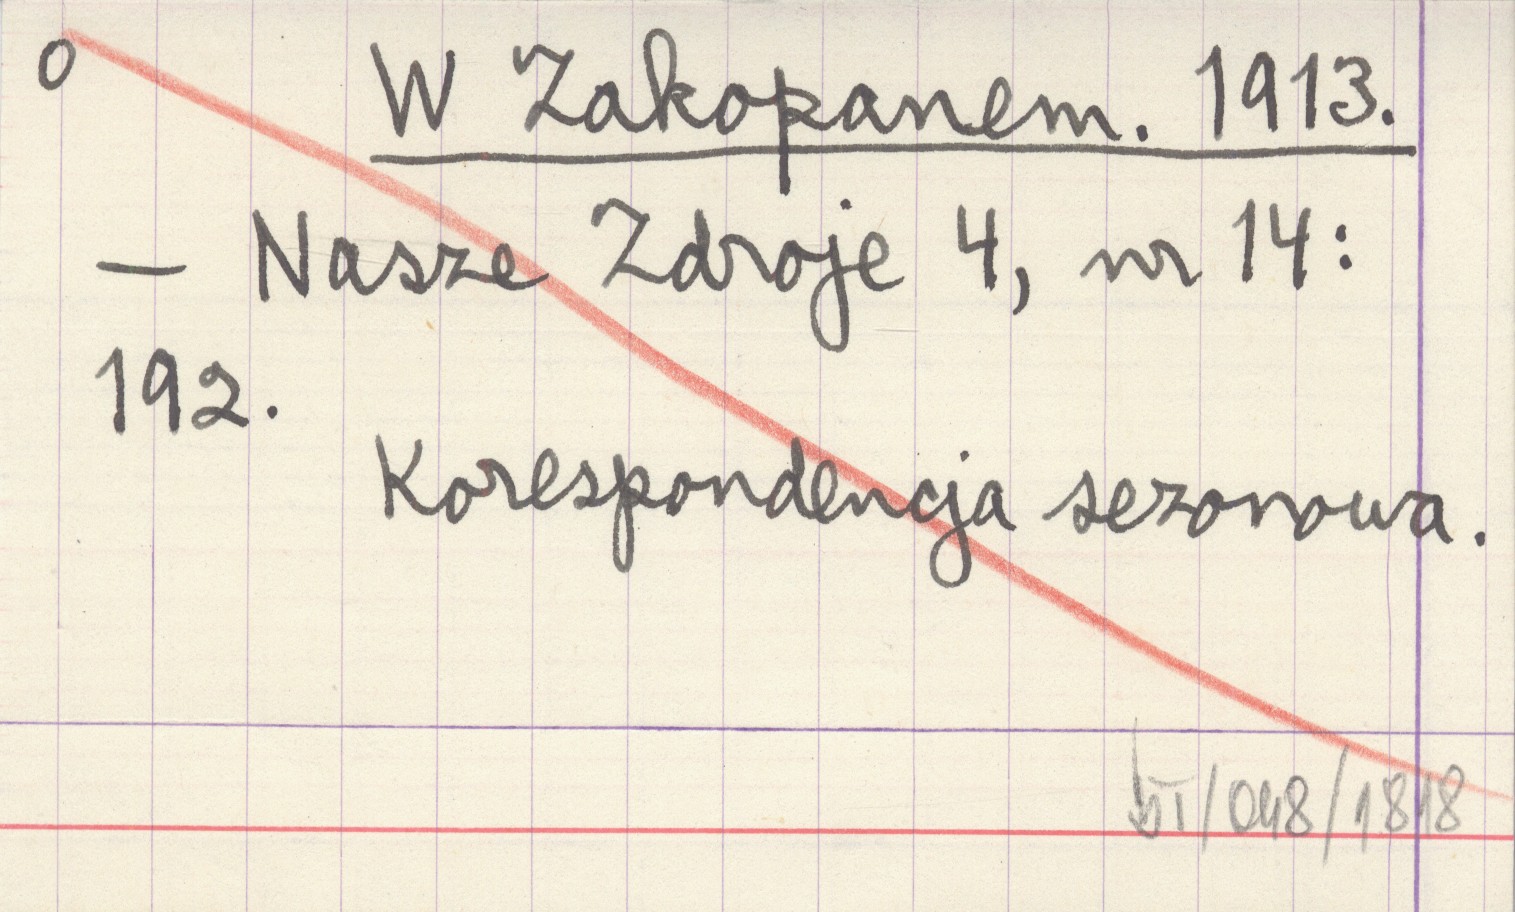 o W Zakopanem. 1913.
— Nasze Zdroje 4, nr 14:
192.
Korespondencja sezonowa.
/048/1818